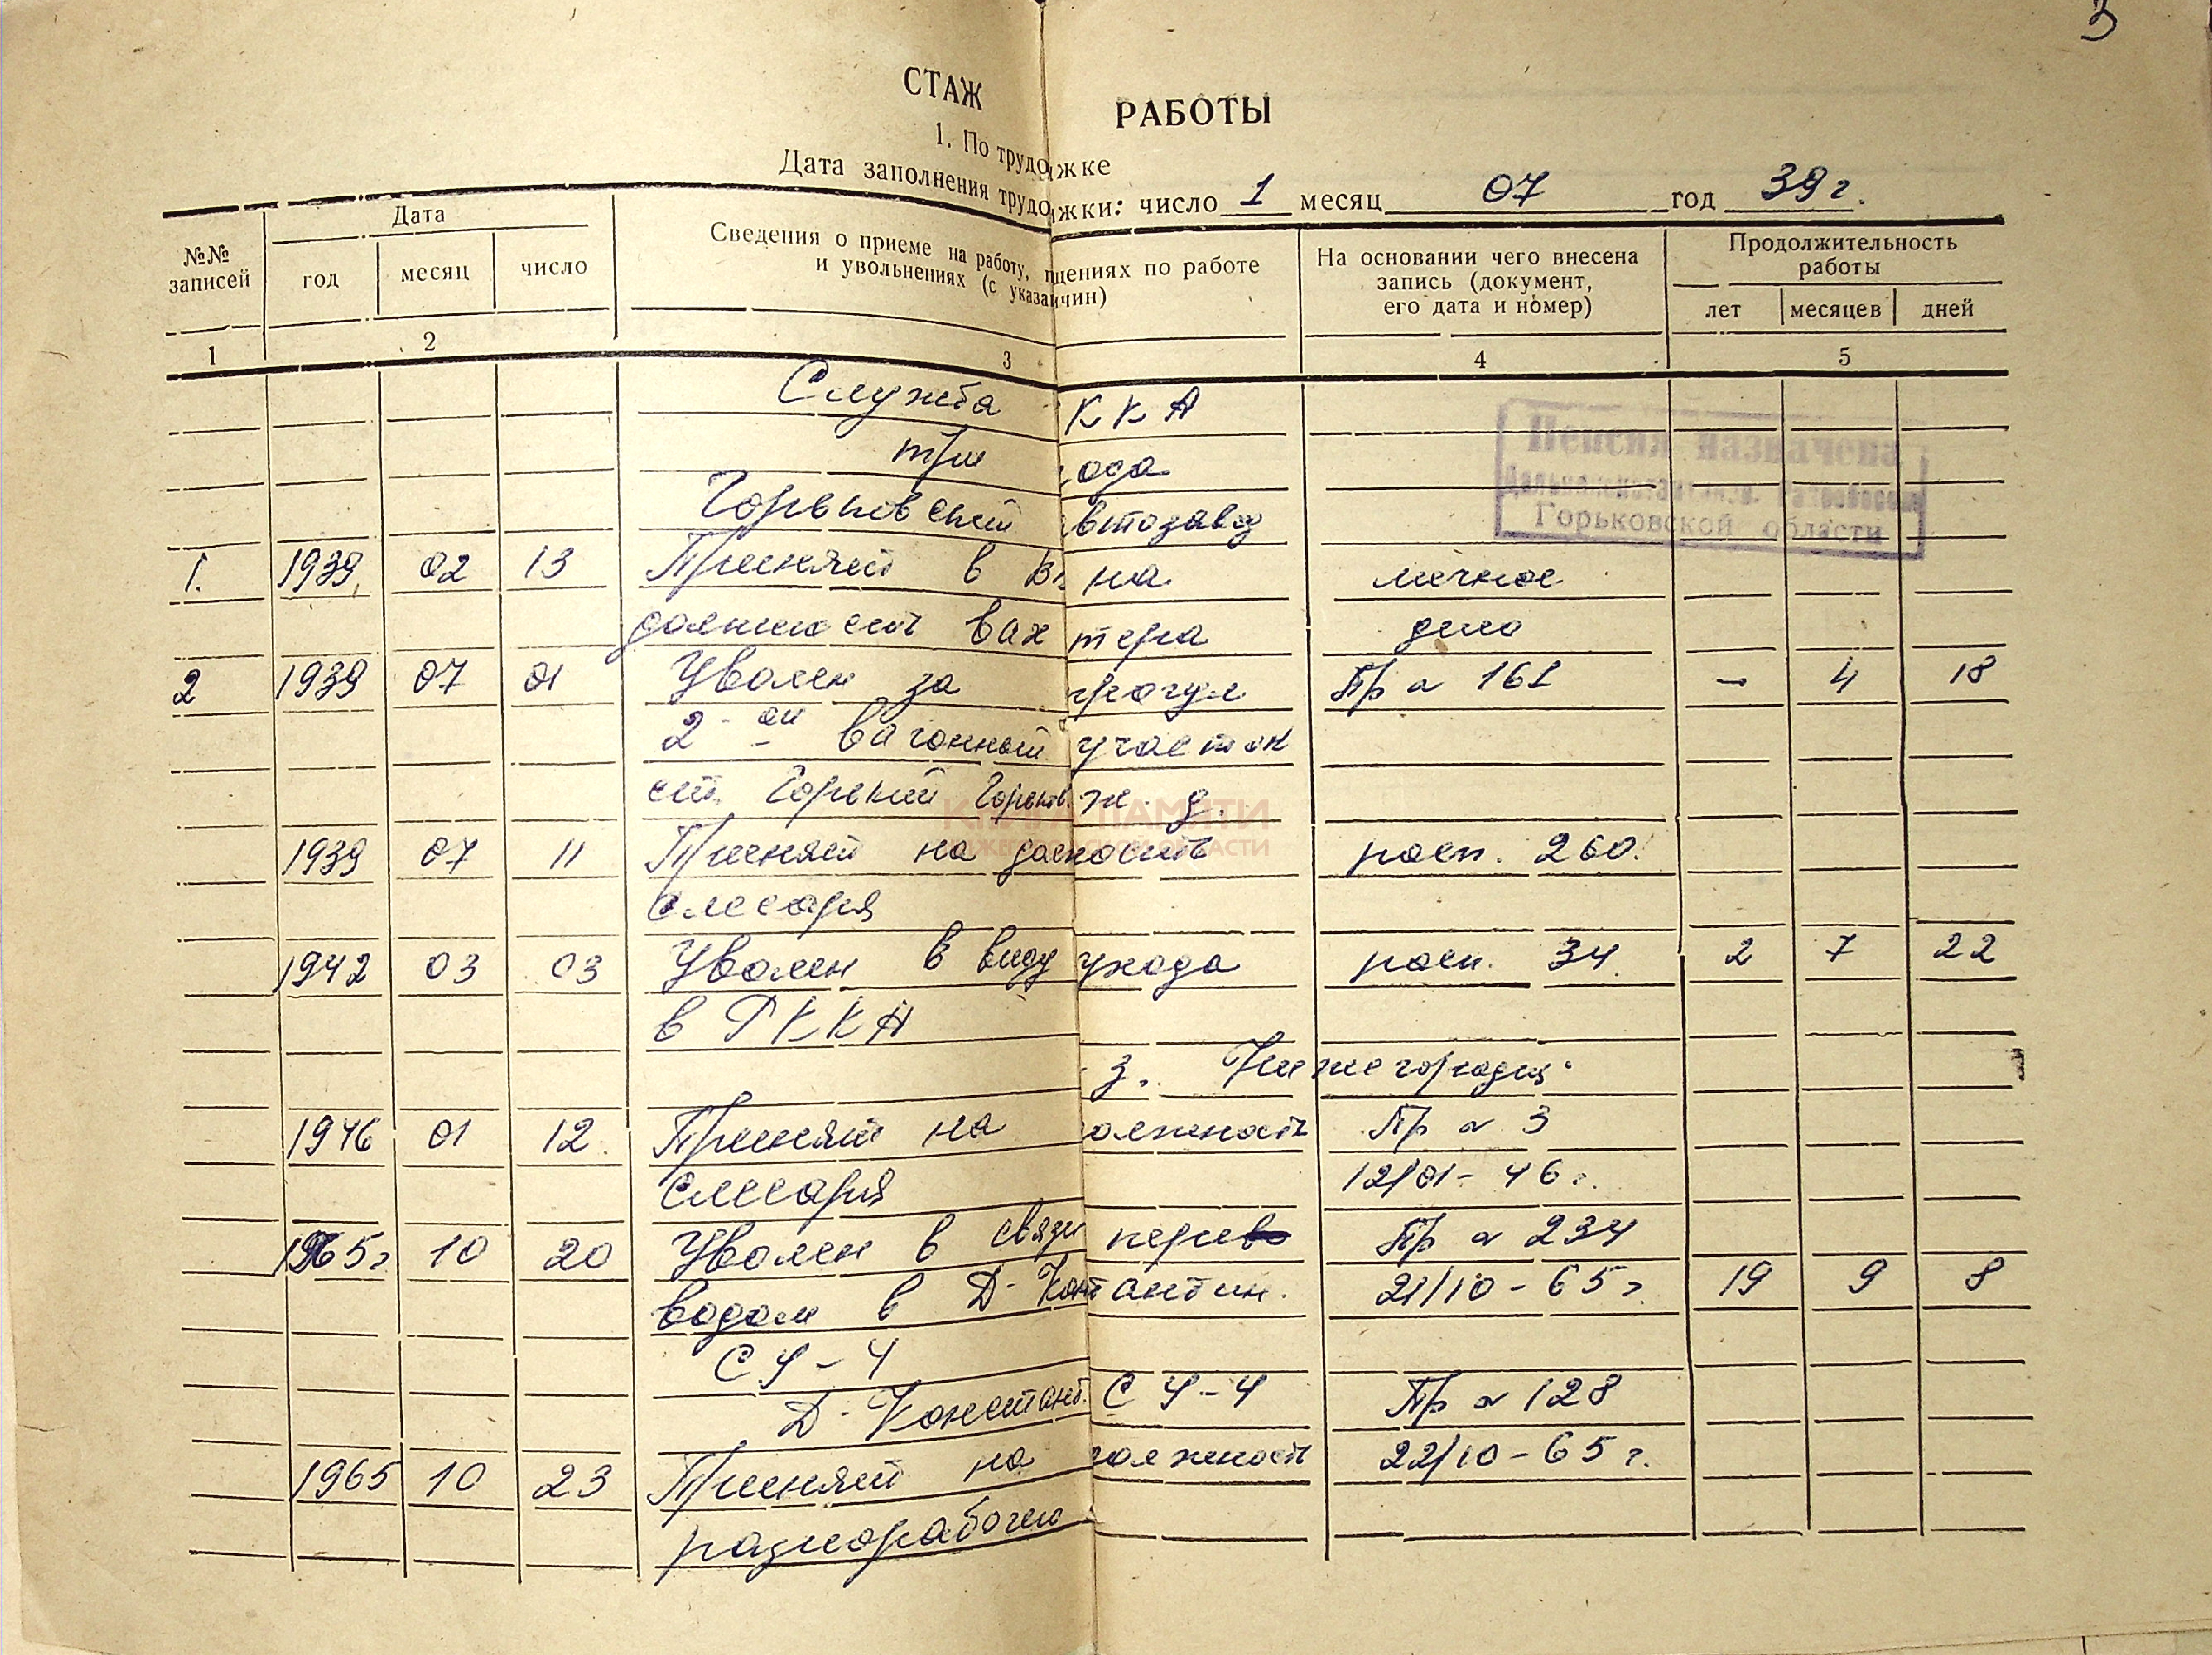 3
СТАЖ РАБОТЫ
1. По трудо жке
Дата заполнения трудо жки: число 1 месяц 07 год 39 г.
№№ записей
Дата
год месяц число
Сведения о приеме на работу, щениях по работе
и увольнениях (с указа ичин)
На основании чего внесена
запись (документ,
его дата и номер)
Продолжительность
работы
лет месяцев дней
1 2 3 4 5
Служба ККА
три ода
Горьковский втозавод
Пенсия назначена
Горьковской области
1. 1939 02 13 Принят в на личное
должность вахтера дело
2 1939 07 01 Уволен за прогул Пр № 161 – 4 18
2-ой вагонный участок
ст. Горький Горьков. ж. д.
КНИГА ПАМЯТИ
1939 07 11 Принят на должность расп. 260.
слесаря
1942 03 03 Уволен в виду ухода расп. 34. 2 7 22
в РККА
з. Нижегородец
1946 01 12 Принят на олжность Пр № 3
слесаря 12/01-46 г.
1965 г 10 20 Уволен в связи перев Пр № 234
водом в Д-Контантин. 21/10-65 г. 19 9 8
СУ-4
Д-Констант. СУ-4 Пр № 128
1965 10 23 Принят на должность 22/10-65 г.
разнорабочего